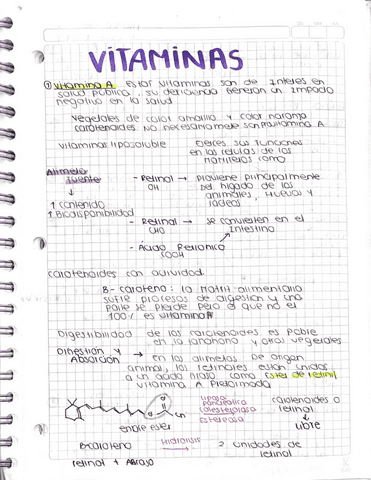 VITAMINAS
① Vitamina A estas vitaminas son de interes en
salud pública, su deficiencia generan un impacto
negativo en la salud
vegetales de color amarillo y color naranja
carotenoides no necesariamente son
vitaminas liposoluble
Ejerces sus funciones
en las celulas de los
como
Alimeto
fuente
↑ contenido
↑ Biodisponibilidad
- Retinol → proviene principalmente
OH
del higado de los
animales, Huevos y
lacteos
- Retinal → se convierten en el
CHO
Intestino
- Acido Retionico
COOH
carotenoides con actividad
B-caroteno: la matriz alimentaria
sufre procesos de digestion y una
parte se pierde pero el que no el
100% es vitamina
Digestibilidad de los carotenoides es pobre
en la zanahoria y otros vegetales
Digestion y
Absorción
→ en los alimetos de origan
animal, los retinoles estan unidos
a un acido graso como Ester de retinil
vitamina A
lipasa
pancreatica
colesterolasa
Estereasa
carotenoides o
retinol
↓
libre
enlace ester
Bcaroteno Hidrolisis → 2 unidades de
retinol
retinol +